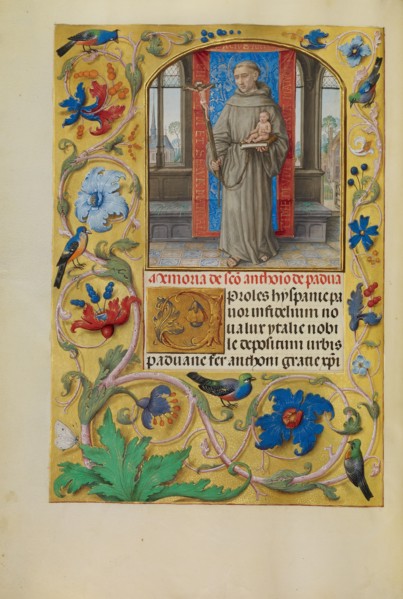 Memoria de sco anthoio de padua
O Proles hyspanie pa
uor infidelium no
ua lux ytalie nobi
le depositum urbis
paduane fer anthoni gratie xpi